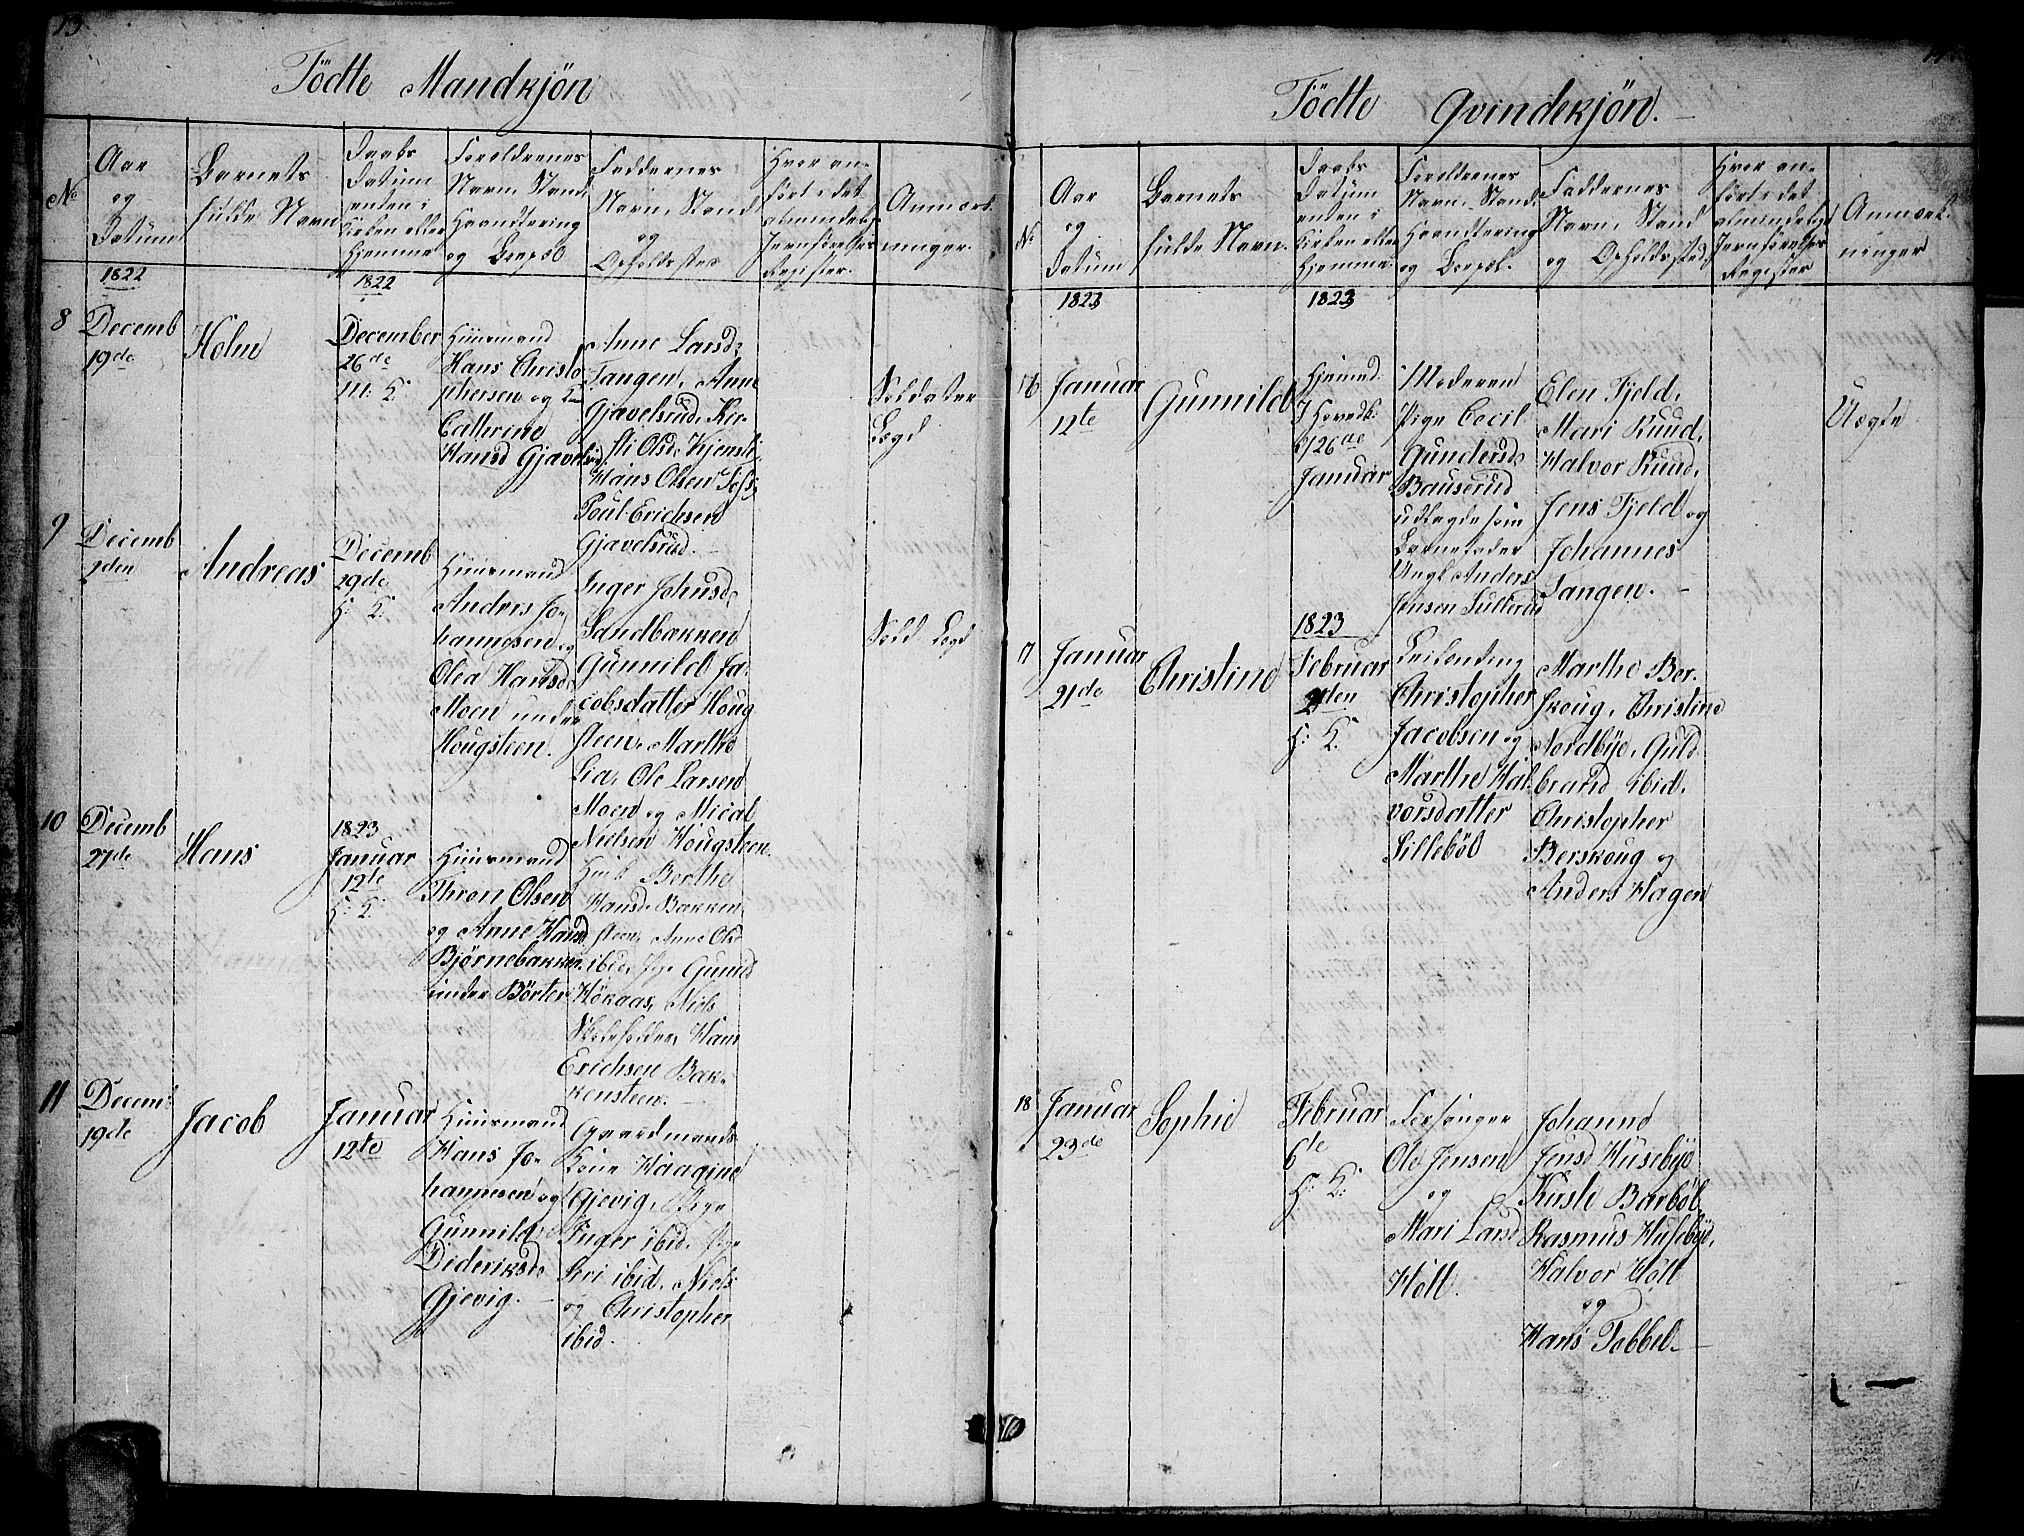 13
Födte Mandkjön
No
Aar
og
Datum
Barnets
fulde Navn
Daabs
Datum
enten i
Kirken eller
hjemme
Foreldrenes
Navn, Stand,
Haandtering
og Bopæl
Faddernes
Navn, Stand
og
Opholdssted
Hvor an-
ført i det
almindelige
Jevnførelses
Register.
Anmærk-
ninger.
1822
1822
8
Decemb
19de
Holm
December
26de
M: K:
Huusmand
Hans Christo
phersen og K
Cathrine
Hansd Gjavelsrud
Anne Larsd
Tangen, Anne
Gjavelsrud, Kir-
sti Olsd. Kjensli
Hans Olsen
Poul Erichsen
Gjavelsrud.
Soldater
Lægd
9
Decemb
2den
Andreas
Decemb
29de
H: K:
Huusmand
Anders Jo-
hannesen og
Olea Hansd
Moen under
Hougsteen.
Inger Johnsd
Sandbakken
Gunnild Ja-
cobsdatter Houg
steen, Marthe
Lia, Ole Larsen
Moen og Mical
Nielsen Hougsteen.
Sold Lægd
10
Decemb
27de
Hans
1823
Januar
12te
H: K:
Huusmand
Thron Olsen
og Anne Hansd
Björnebakken
under Börter
Berthe
Hansd. Bakken
steen, Anne Ols
ibid, Gunild
Hökaas, Niels
Skoleholder, Hans
Erichsen Bak-
kensteen.
11
Decemb
19de
Jacob
Januar
12te
Huusmand
Hans Jo-
hannesen og
Gunnild
Dideriksd
Gjevig.
Gaardmands
Kone Haagine
Gjevig, Pige
Inger ibid, Pige
Siri ibid, Niels
og Christopher
ibid.
Födte Qvindekjön.
No
Aar
og
Datum
Barnets
fulde Navn.
Daabs
Datum
enten i
Kirken eller
hjemme
Foreldrenes
Navn, Stand,
Haandtering
og Bopæl.
Faddernes
Navn, Stand
og Opholdssted
Hvor an-
ført i det
almindelige
Jevnførelses
Register
Anmærk-
ninger
1823
1823
16
Januar
12te
Gunnild
Hjemmed.
I Hovedk:
d/26de
Januar
Moderen
Pige Cecil
Gundersd
Bauserud
udlagde som
Barnefader
Ungk. Anders
Jensen Tullerud
Elen Fjeld,
Mari Ruud,
Halvor Ruud,
Jens Fjeld og
Johannes
Tangen.
Uægte
17
Januar
21de
Christine
1823
Februar
2den
H: K:
Leilending
Christopher
Jacobsen og
Marthe Hal-
vorsdatter
Lilleböl
Marthe Ber-
skoug, Christine
Nordbye, Guld
brand ibid,
Christopher
Berskoug og
Anders Hagen
18
Januar
23de
Sophie
Februar
6te
H: K:
Forsanger
Ole Jensen
og
Mari Larsd
Höll.
Johanne
Jensd Husebye
Kirsti Barböl,
Rasmus Husebye,
Halvor Höll
og
Hans Tobbel.